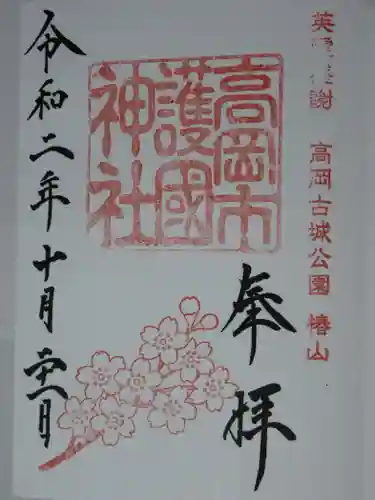 英霊感謝 高岡古城公園 椿山
奉拝
高岡市
護國
神社
令和二年十月廿八日